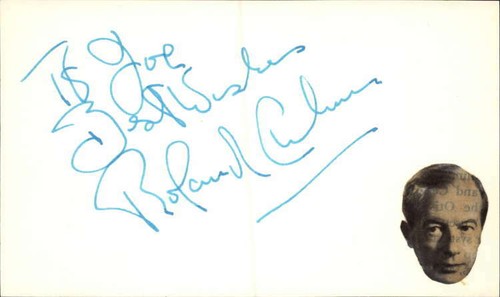 To Joe
Best Wishes
Roland Culver